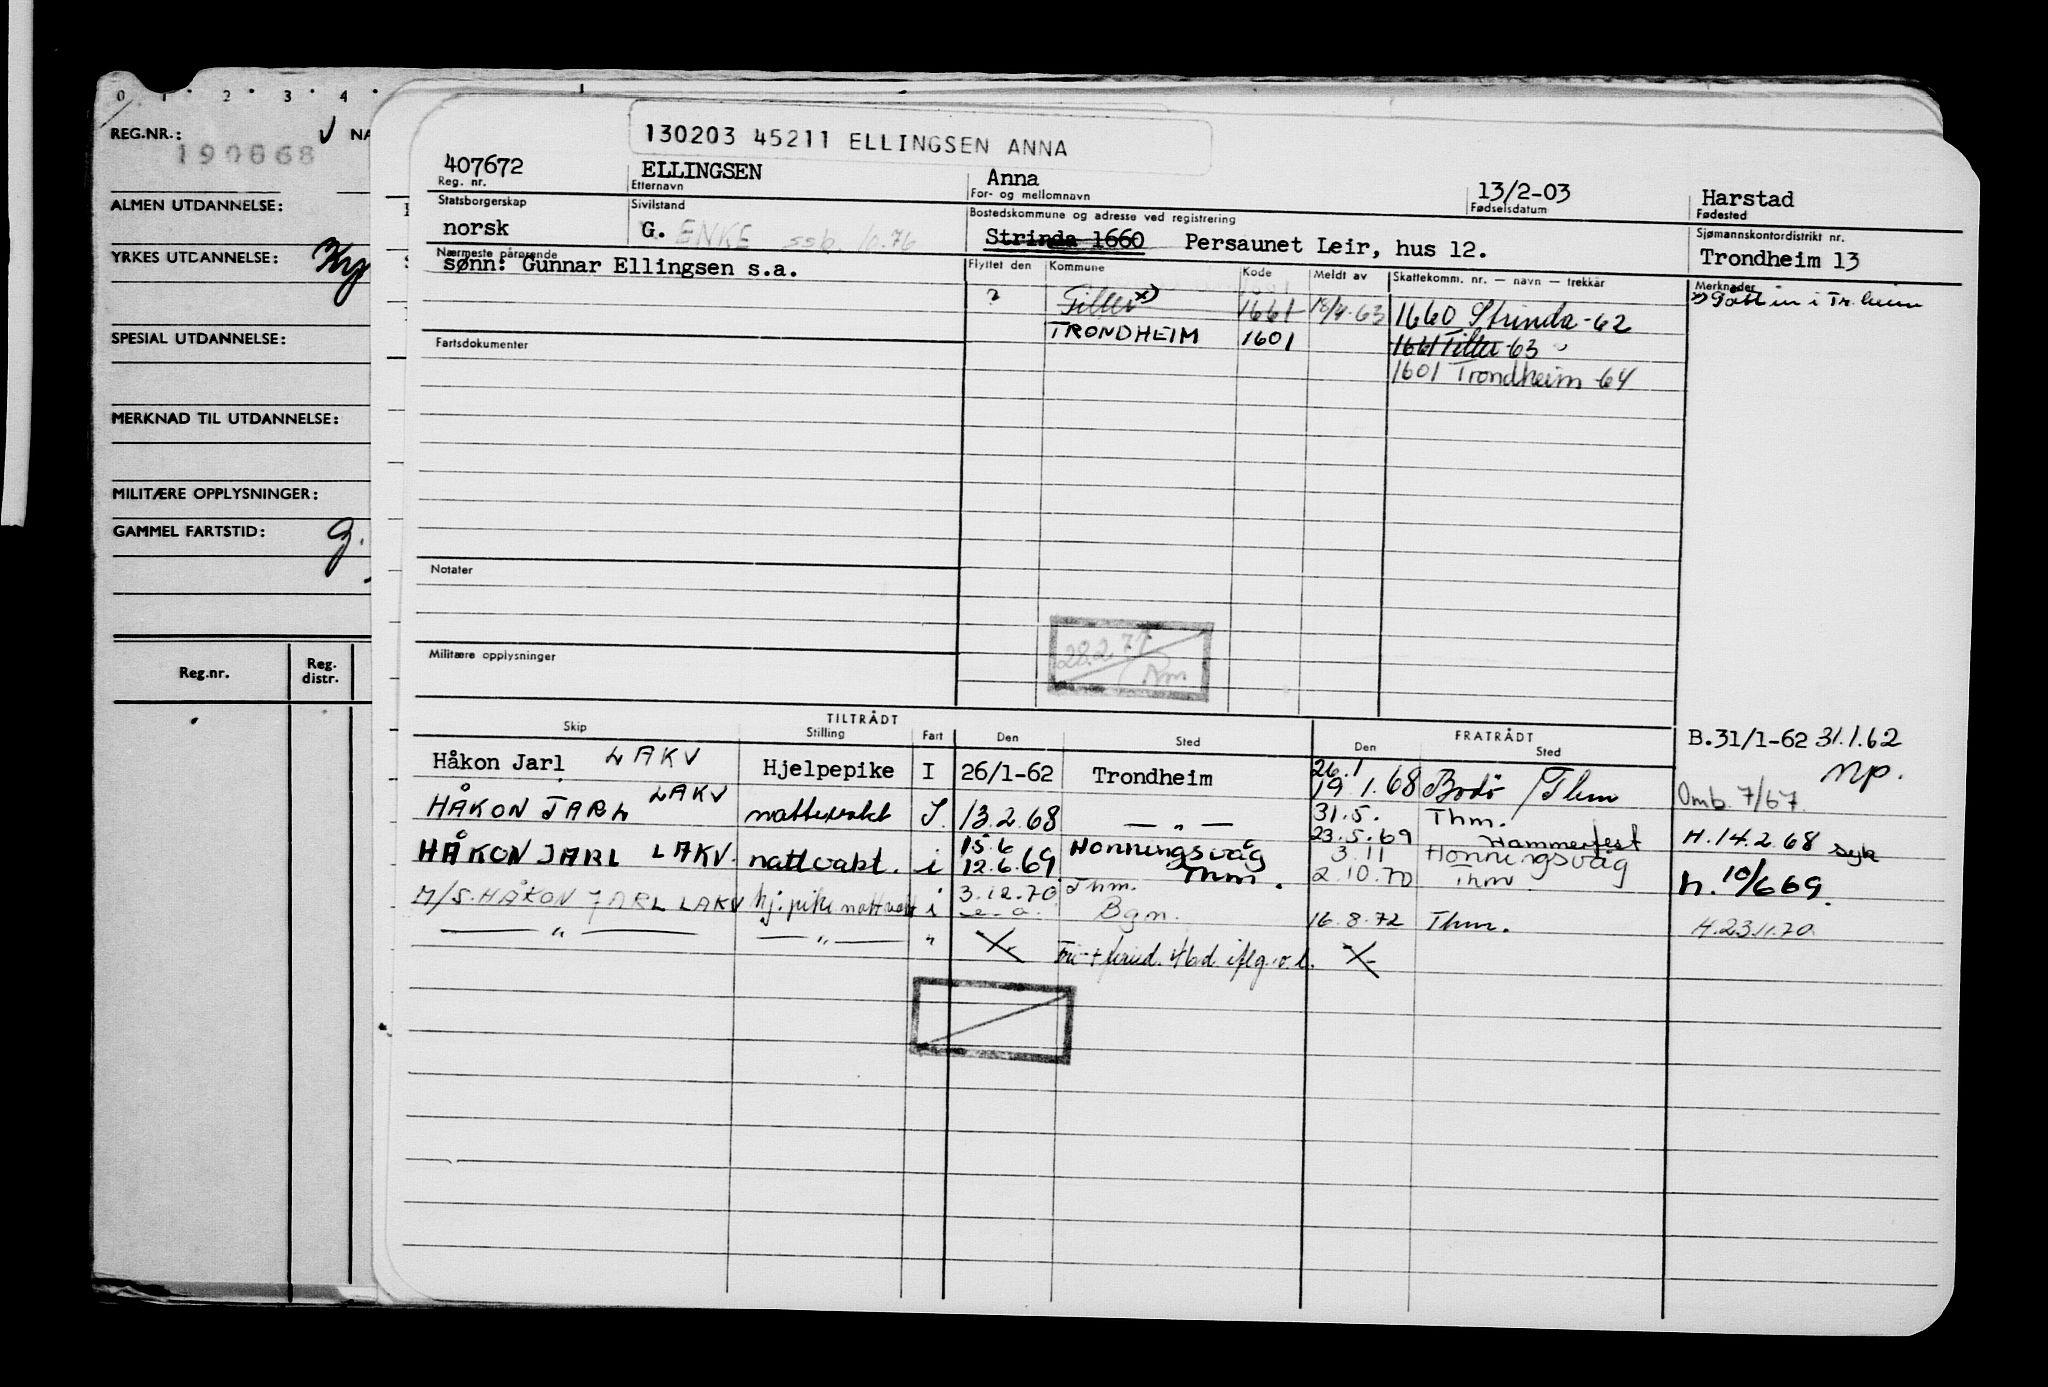 0 1 2 3 4
REG.NR.: NA
190868
ALMEN UTDANNELSE:
YRKES UTDANNELSE:
SPESIAL UTDANNELSE:
MERKNAD TIL UTDANNELSE:
MILITÆRE OPPLYSNINGER:
GAMMEL FARTSTID: g.
Reg.nr. Reg. distr.
130203 45211 ELLINGSEN ANNA
407672 ELLINGSEN Anna 13/2-03 Harstad
Reg. nr. Etternavn For- og mellomnavn Fødselsdatum Fødested
Statsborgerskap Sivilstand Bostedskommune og adresse ved registrering Sjømannskontordistrikt nr.
norsk G. ENKE ssb. 10.76 Strinda 1660 Persaunet Leir, hus 12. Trondheim 13
Nærmeste pårørende Flyttet den Kommune Kode Meldt av Skattekomm. nr. — navn — trekkår Merknader
sønn: Gunnar Ellingsen s.a.
? Tiller x) 1661 18/4-63 1660 Strinda -62 x) Gått inn i Tr.heim
TRONDHEIM 1601 1661 Tiller -63
Fartsdokumenter
1601 Trondheim -64
Notater
28.2.77
Militære opplysninger
TILTRÅDT FRATRÅDT
Skip Stilling Fart Den Sted Den Sted
B.31/1-62 31.1.62
Håkon Jarl LAKV Hjelpepike I 26/1-62 Trondheim 26.1 19.1.68 Bodø / Thm
Mp.
Omb. 7/67
HÅKON JARL LAKV nattevakt I. 13.2.68 — " — 31.5. 23.5.69 Thm. Hammerfest H.14.2.68 syk
HÅKON JARL LAKV. nattvakt. i 15.6 12.6.69 Honningsvåg Thm. 3.11 2.10.70 Honningsvåg Thm h. 10/6 69.
M/S. HÅKON JARL LAKV hj.pike nattvakt i 3.12.70 Thm. Bgm. 16.8.72 Thm. H.23.11.70
— " — — " — "